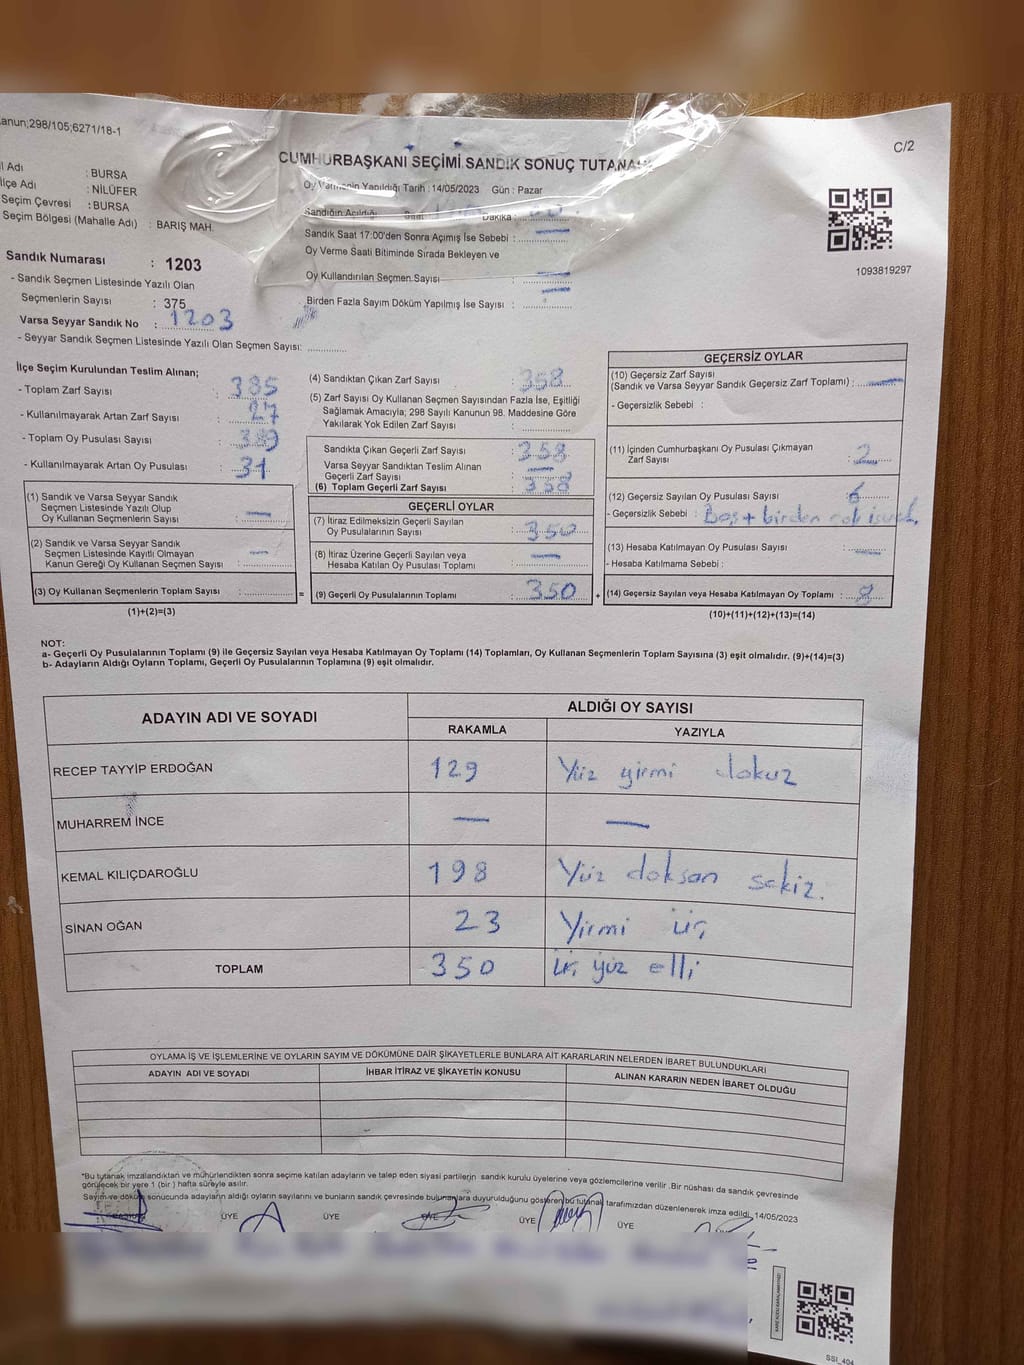 anun;298/105;6271/18-1
C/2
CUMHURBAŞKANI SEÇİMİ SANDIK SONUÇ TUTANA
l Adı : BURSA
lçe Adı : NİLÜFER
Seçim Çevresi : BURSA
Seçim Bölgesi (Mahalle Adı) : BARIŞ MAH.
Oy Vermenin Yapıldığı Tarih : 14/05/2023 Gün : Pazar
Sandığın Açıldığı Saat Dakika :
Sandık Saat 17:00'den Sonra Açımış İse Sebebi :
Oy Verme Saati Bitiminde Sırada Bekleyen ve
Oy Kullandırılan Seçmen Sayısı
Birden Fazla Sayım Döküm Yapılmış İse Sayısı :
1093819297
Sandık Numarası : 1203
- Sandık Seçmen Listesinde Yazılı Olan
Seçmenlerin Sayısı : 375
Varsa Seyyar Sandık No : 1203
- Seyyar Sandık Seçmen Listesinde Yazılı Olan Seçmen Sayısı:
İlçe Seçim Kurulundan Teslim Alınan;
- Toplam Zarf Sayısı : 385
- Kullanılmayarak Artan Zarf Sayısı : 27
- Toplam Oy Pusulası Sayısı : 389
- Kullanılmayarak Artan Oy Pusulası : 31
(1) Sandık ve Varsa Seyyar Sandık
Seçmen Listesinde Yazılı Olup
Oy Kullanan Seçmenlerin Sayısı : —
(2) Sandık ve Varsa Seyyar Sandık
Seçmen Listesinde Kayıtlı Olmayan
Kanun Gereği Oy Kullanan Seçmen Sayısı : —
(3) Oy Kullanan Seçmenlerin Toplam Sayısı : =
(1)+(2)=(3)
(4) Sandıktan Çıkan Zarf Sayısı : 358
(5) Zarf Sayısı Oy Kullanan Seçmen Sayısından Fazla İse, Eşitliği
Sağlamak Amacıyla; 298 Sayılı Kanunun 98. Maddesine Göre
Yakılarak Yok Edilen Zarf Sayısı :
Sandıkta Çıkan Geçerli Zarf Sayısı : 358
Varsa Seyyar Sandıktan Teslim Alınan
Geçerli Zarf Sayısı : —
(6) Toplam Geçerli Zarf Sayısı : 358
GEÇERLİ OYLAR
(7) İtiraz Edilmeksizin Geçerli Sayılan
Oy Pusulalarının Sayısı : 350
(8) İtiraz Üzerine Geçerli Sayılan veya
Hesaba Katılan Oy Pusulası Toplamı : —
(9) Geçerli Oy Pusulalarının Toplamı : 350 +
GEÇERSİZ OYLAR
(10) Geçersiz Zarf Sayısı
(Sandık ve Varsa Seyyar Sandık Geçersiz Zarf Toplamı) : —
- Geçersizlik Sebebi :
(11) İçinden Cumhurbaşkanı Oy Pusulası Çıkmayan
Zarf Sayısı : 2
(12) Geçersiz Sayılan Oy Pusulası Sayısı : 6
- Geçersizlik Sebebi : Boş + birden
(13) Hesaba Katılmayan Oy Pusulası Sayısı : —
- Hesaba Katılmama Sebebi :
(14) Geçersiz Sayılan veya Hesaba Katılmayan Oy Toplamı : 8
(10)+(11)+(12)+(13)=(14)
NOT:
a- Geçerli Oy Pusulalarının Toplamı (9) ile Geçersiz Sayılan veya Hesaba Katılmayan Oy Toplamı (14) Toplamları, Oy Kullanan Seçmenlerin Toplam Sayısına (3) eşit olmalıdır. (9)+(14)=(3)
b- Adayların Aldığı Oyların Toplamı, Geçerli Oy Pusulalarının Toplamına (9) eşit olmalıdır.
ADAYIN ADI VE SOYADI ALDIĞI OY SAYISI
RAKAMLA YAZIYLA
RECEP TAYYİP ERDOĞAN 129 Yüz yirmi dokuz
MUHARREM İNCE — —
KEMAL KILIÇDAROĞLU 198 Yüz doksan sekiz.
SİNAN OĞAN 23 Yirmi üç
TOPLAM 350 üç yüz elli
OYLAMA İŞ VE İŞLEMLERİNE VE OYLARIN SAYIM VE DÖKÜMÜNE DAİR ŞİKAYETLERLE BUNLARA AİT KARARLARIN NELERDEN İBARET BULUNDUKLARI
ADAYIN ADI VE SOYADI İHBAR İTİRAZ VE ŞİKAYETİN KONUSU ALINAN KARARIN NEDEN İBARET OLDUĞU
*Bu tutanak imzalandıktan ve mühürlendikten sonra seçime katılan adayların ve talep eden siyasi partilerin sandık kurulu üyelerine veya gözlemcilerine verilir .Bir nüshası da sandık çevresinde
görülecek bir yere 1 (bir ) hafta süreyle asılır.
Sayım ve döküm sonucunda adayların aldığı oyların sayılarını ve bunların sandık çevresinde bulunanlara duyurulduğunu gösteren bu tutanak tarafımızdan düzenlenerek imza edildi. 14/05/2023
ÜYE ÜYE ÜYE ÜYE ÜYE
SSI_404